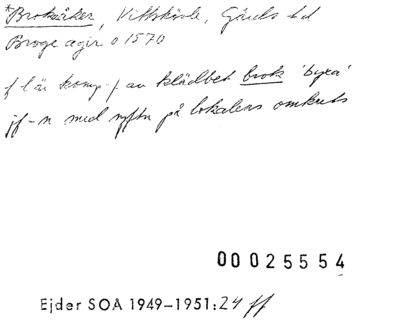 *Broksåker, Vittskövle, Gärds hd
Broge agir o 1570
f l är komp. f av klädbet brok 'byxa'
jf-n med syftn på lokalens omkrets
00025554
Ejder SOA 1949-1951:24 ff